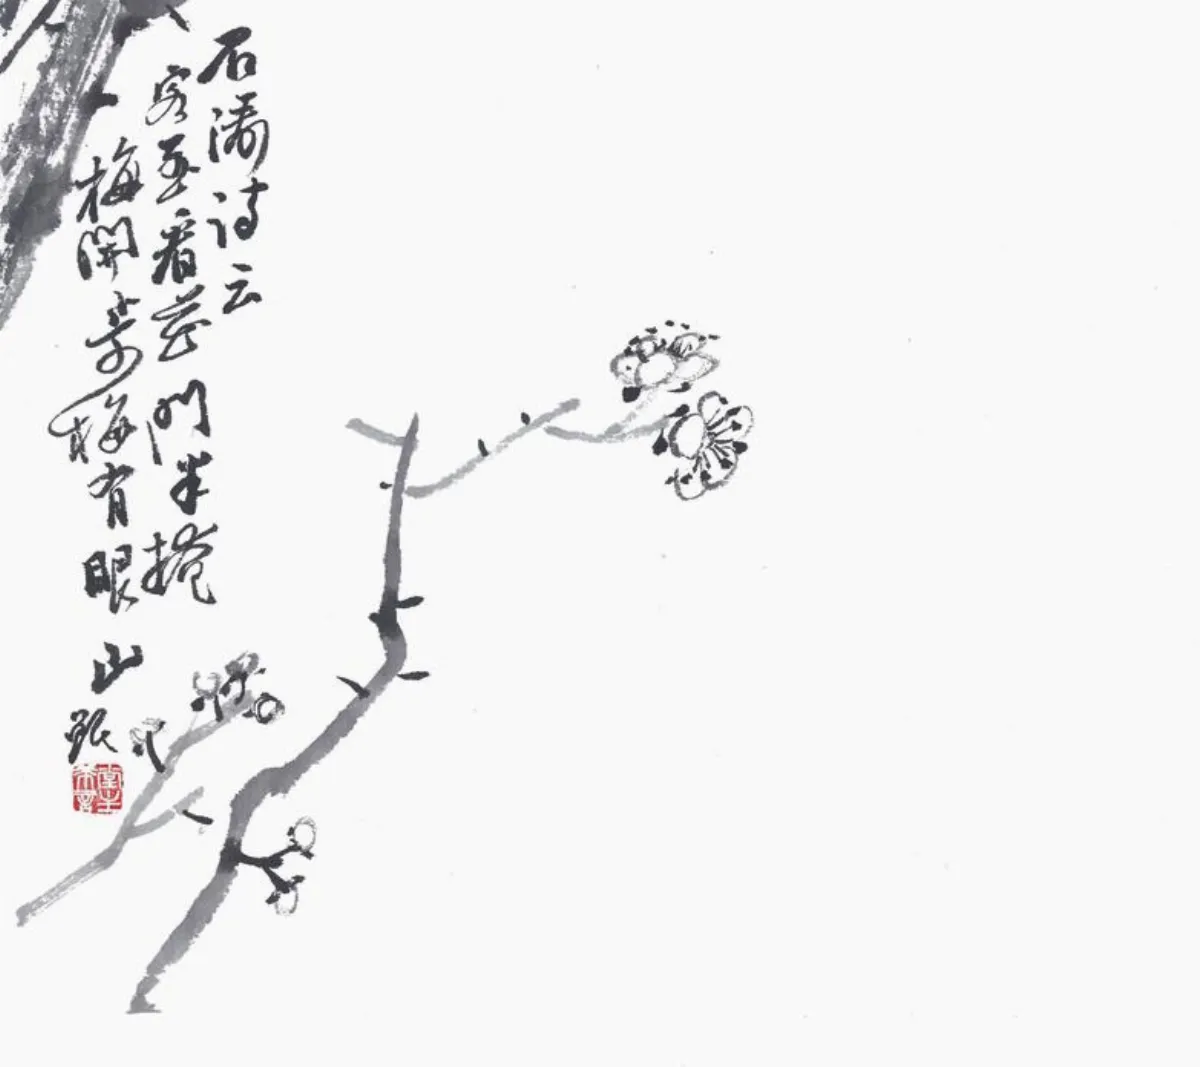 石濤詩云
客至看花門半掩
梅開梅有眼
山